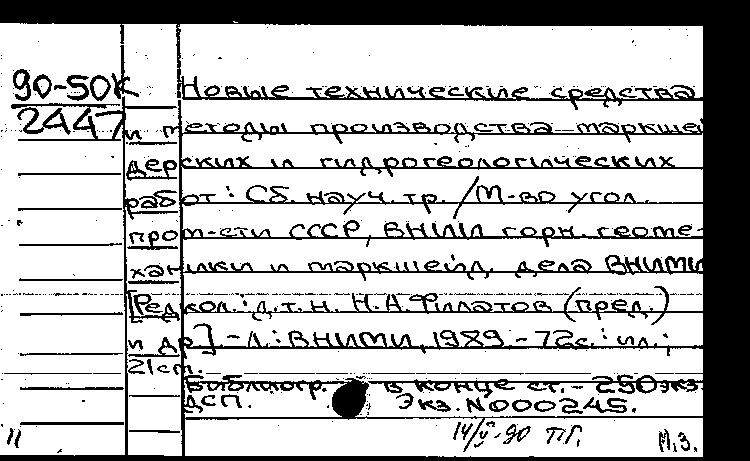 90-50К
2447
Новые технические средства
и методы производства маркшей
дерских и гидрогеологических
работ : Сб. науч. тр. / М-во угол.
пром-сти СССР, ВНИИ горн. геоме-
ханики и маркшейд. дела ВНИМИ
[Редкол.: д.т.н. Н.А.Филатов (пред.)
и др.] - Л.: ВНИМИ, 1989. - 72с.: ил.;
21см.
Библиогр. в конце ст. - 250экз.
ДСП. Экз. N000245.
14/V-90 ПГ.
М.З.
11